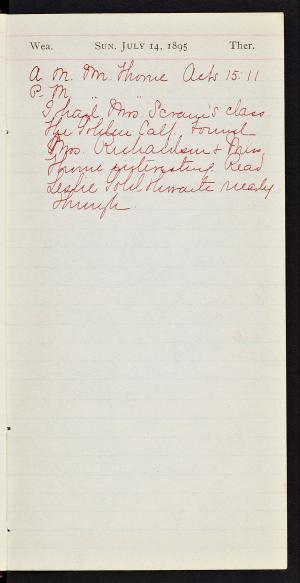 Wea. SUN. JULY 14, 1895 Ther.
A. M. Mr. Thorne Acts 15:11
P. M. " "
I had Mrs. Scram's class.
The Golden Calf, found
Mrs. Richardson & Miss
Thorne interesting. Read
Leslie Goldthwaite nearly
through.